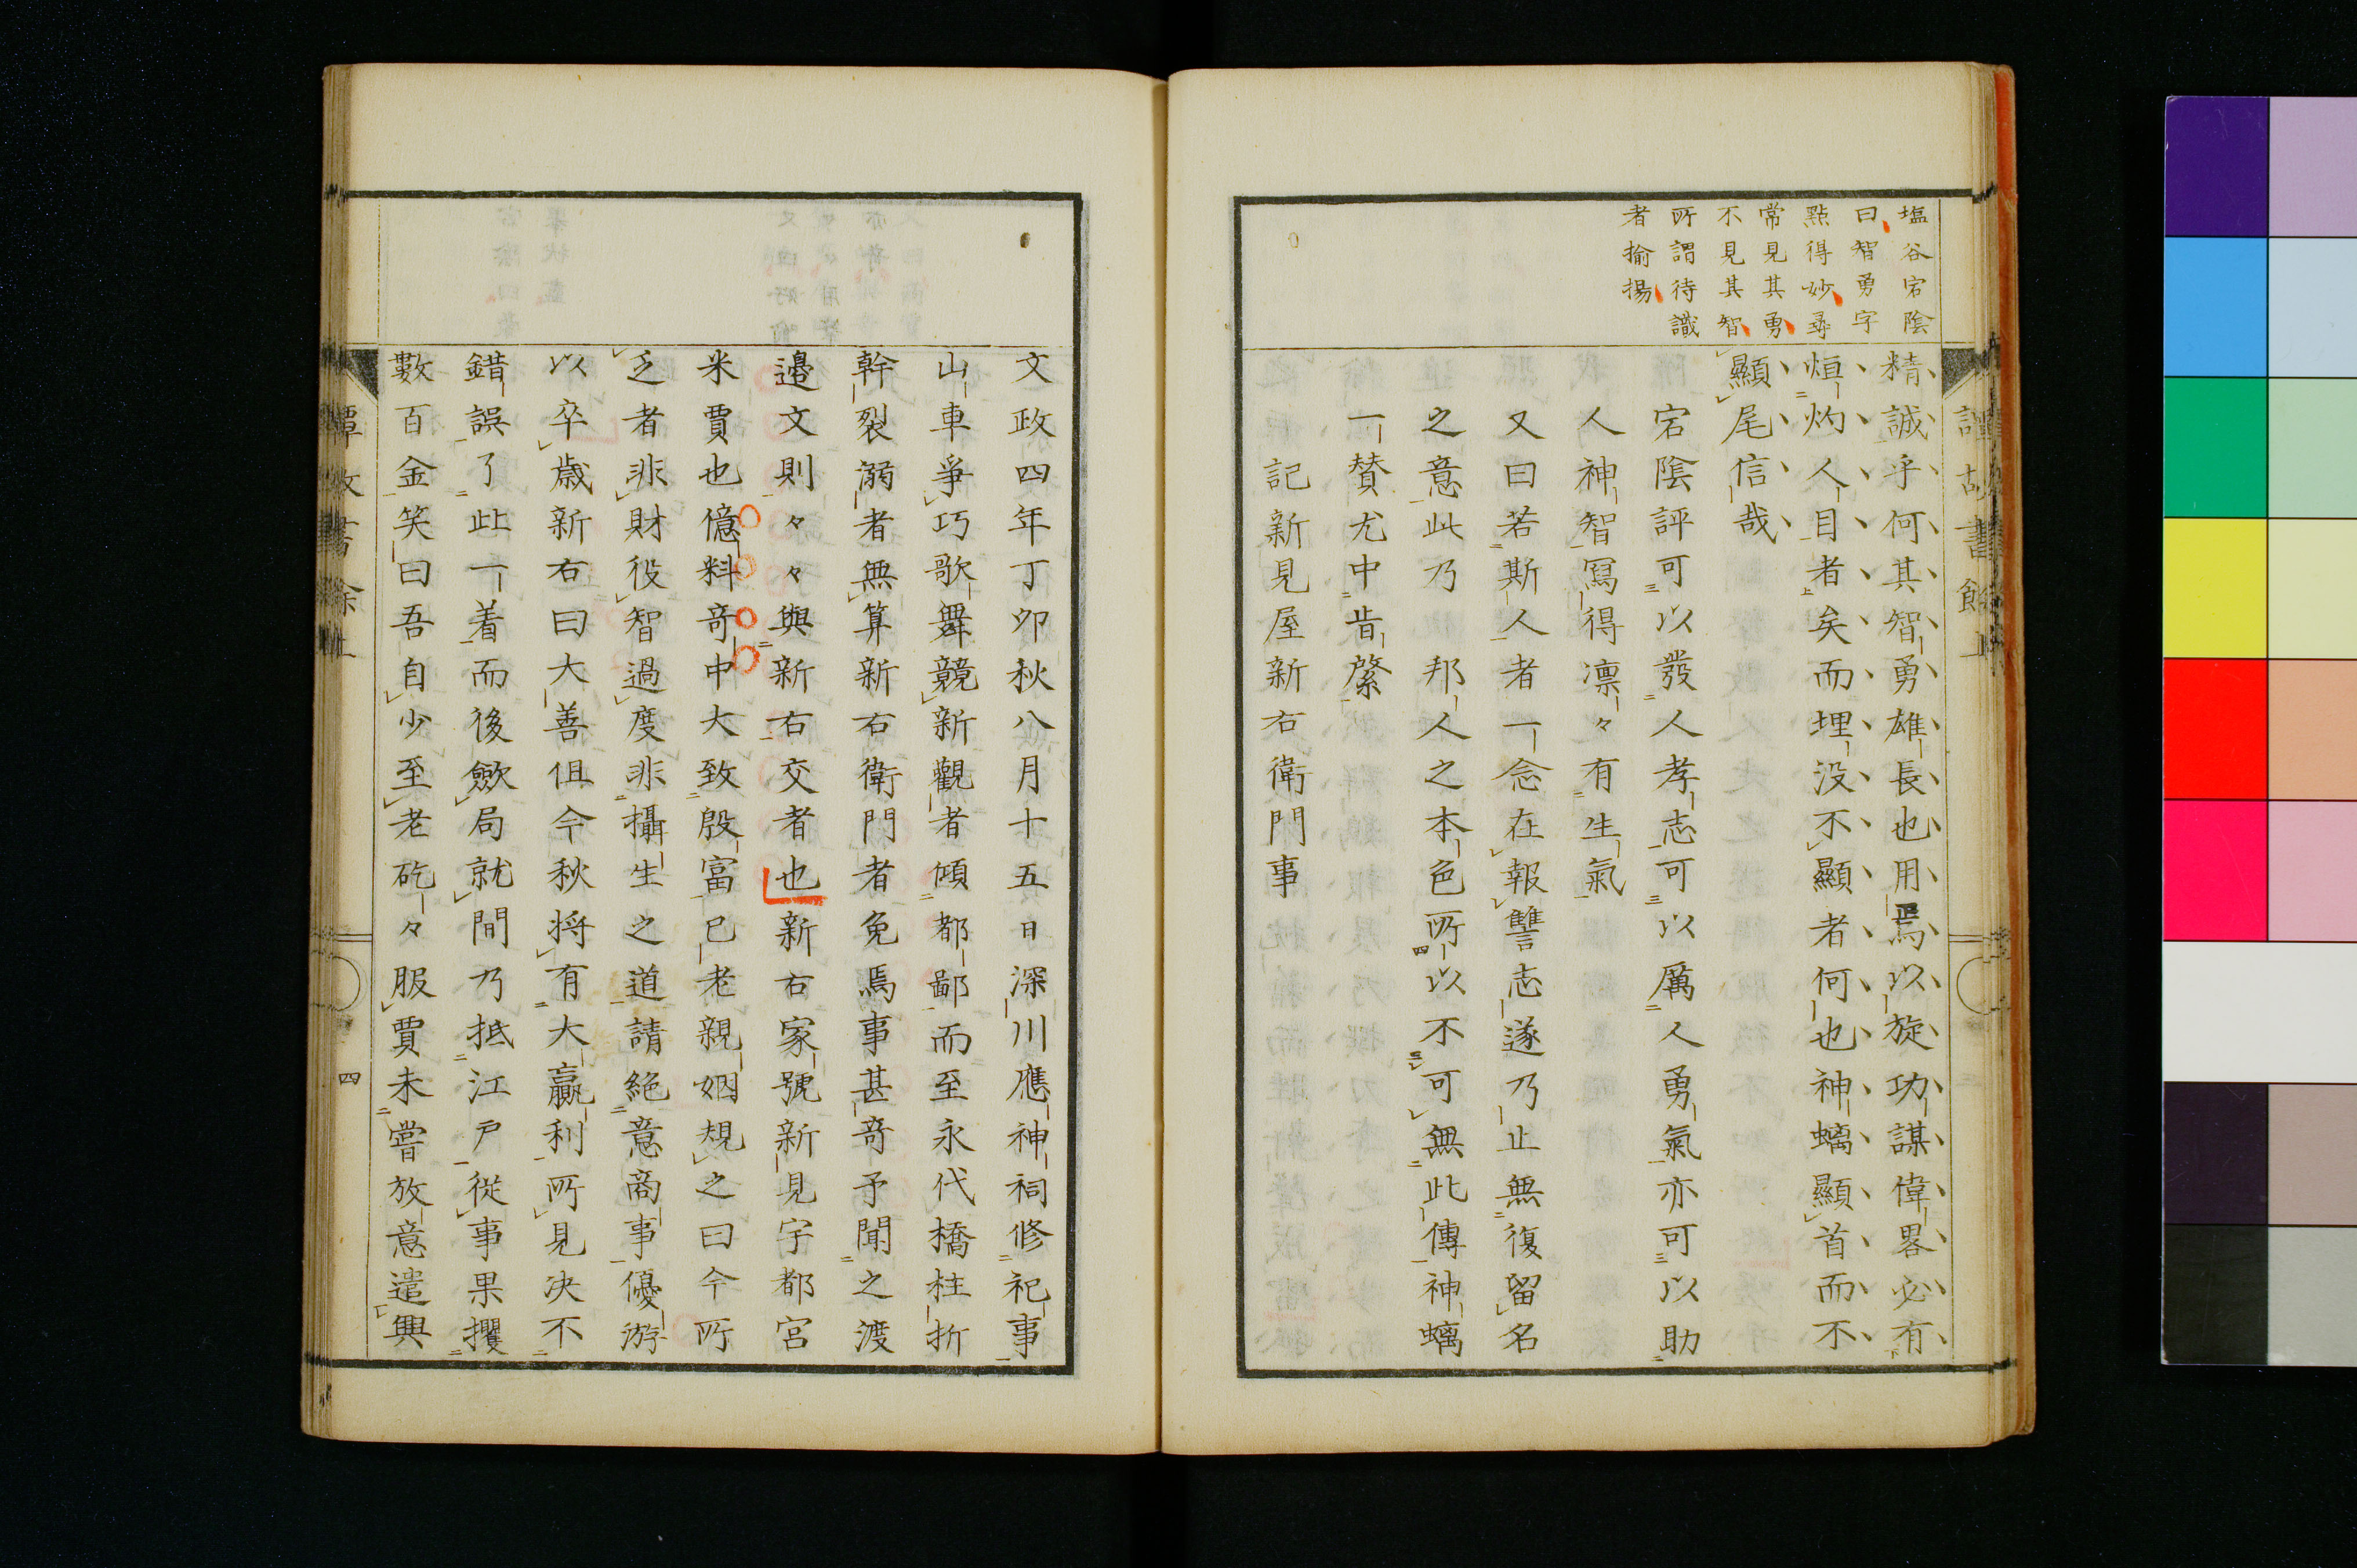 塩谷宕陰
曰智勇字
點得妙尋
常見其勇
不見其智
所謂待識
者揄揚
精誠乎何其智勇雄長也用焉以旋功謀偉畧必有
烜灼人目者矣而埋没不顯者何也神螭顯首而不
顯尾信哉
宕陰評可以發人孝志可以厲人勇氣亦可以助
人神智寫得凛々有生氣
又曰若斯人者一念在報讐志遂乃止無復留名
之意此乃邦人之本色所以不可無此傳神螭
一賛尤中肯綮
記新見屋新右衛門事
文政四年丁卯秋八月十五日深川應神祠修祀事
山車爭巧歌舞競新觀者傾都鄙而至永代橋柱折
幹裂溺者無算新右衛門者免焉事甚竒予聞之渡
邉文則々々與新右交者也新右家號新見宇都宮
米賈也億料竒中大致殷富已老親姻規之曰今所
乏者非財役智過度非攝生之道請絶意商事優游
以卒歳新右曰大善但今秋将有大贏利所見决不
錯誤了此一着而後歛局就間乃抵江戸從事果攫
數百金笑曰吾自少至老矻々服賈未嘗放意遣興
四